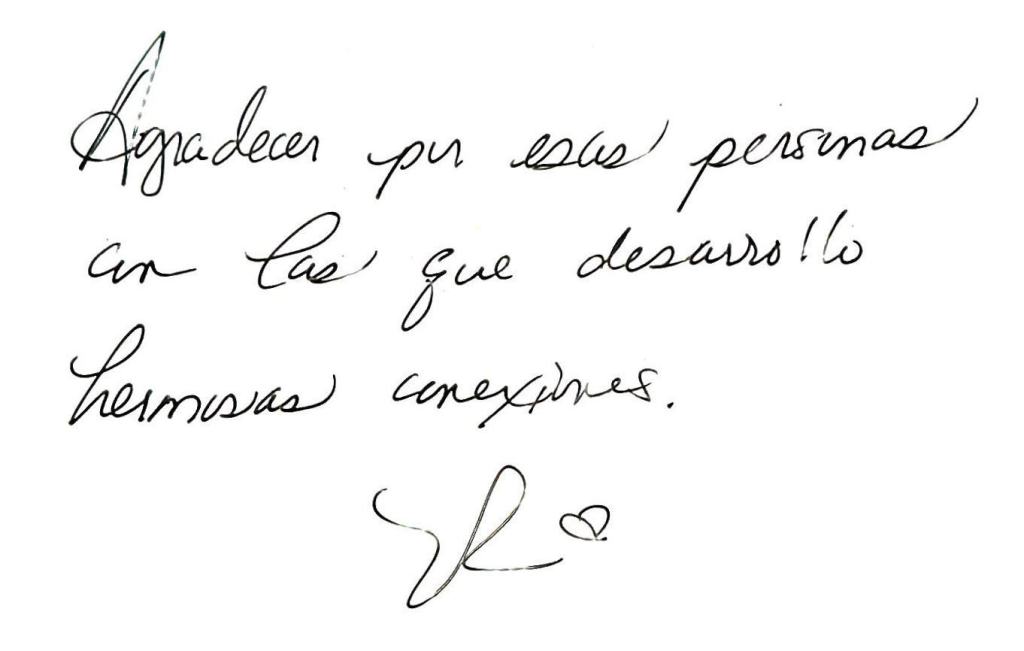 Agradecer por esas personas
con las que desarrollo
hermosas conexiones.